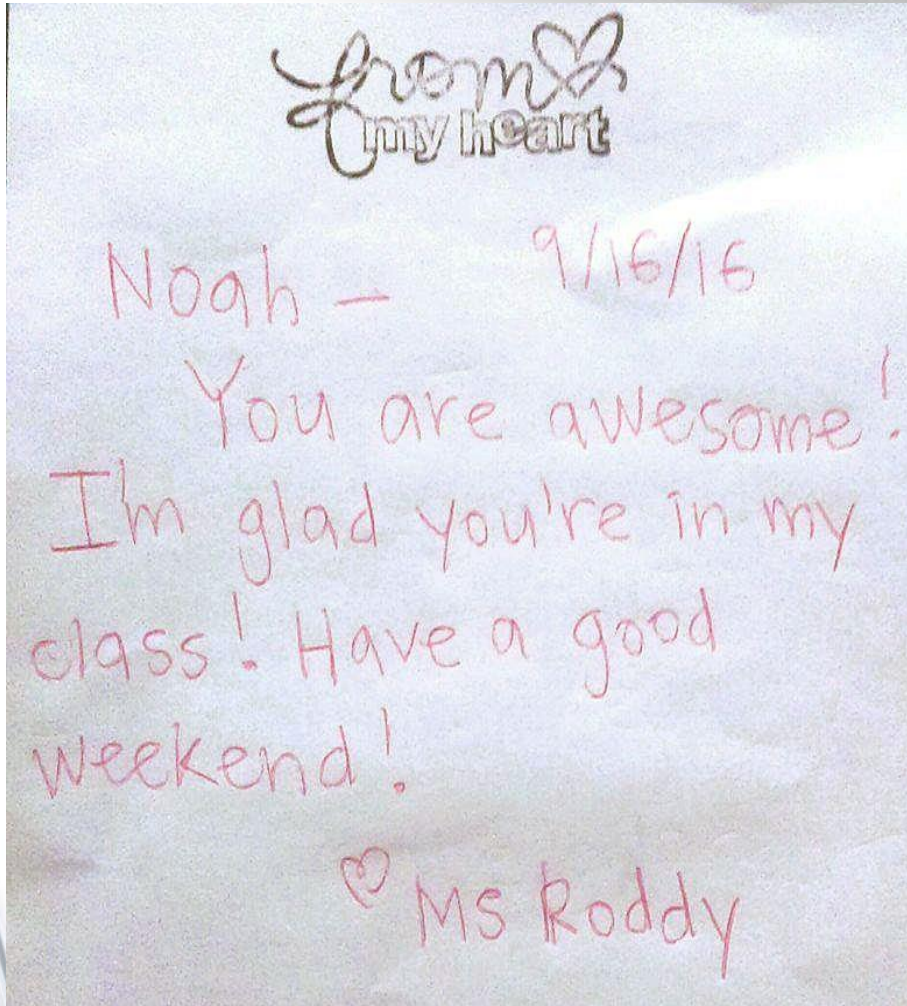 from
my heart
Noah – 9/16/16
You are awesome!
I'm glad you're in my
class! Have a good
weekend!
♡ Ms Roddy